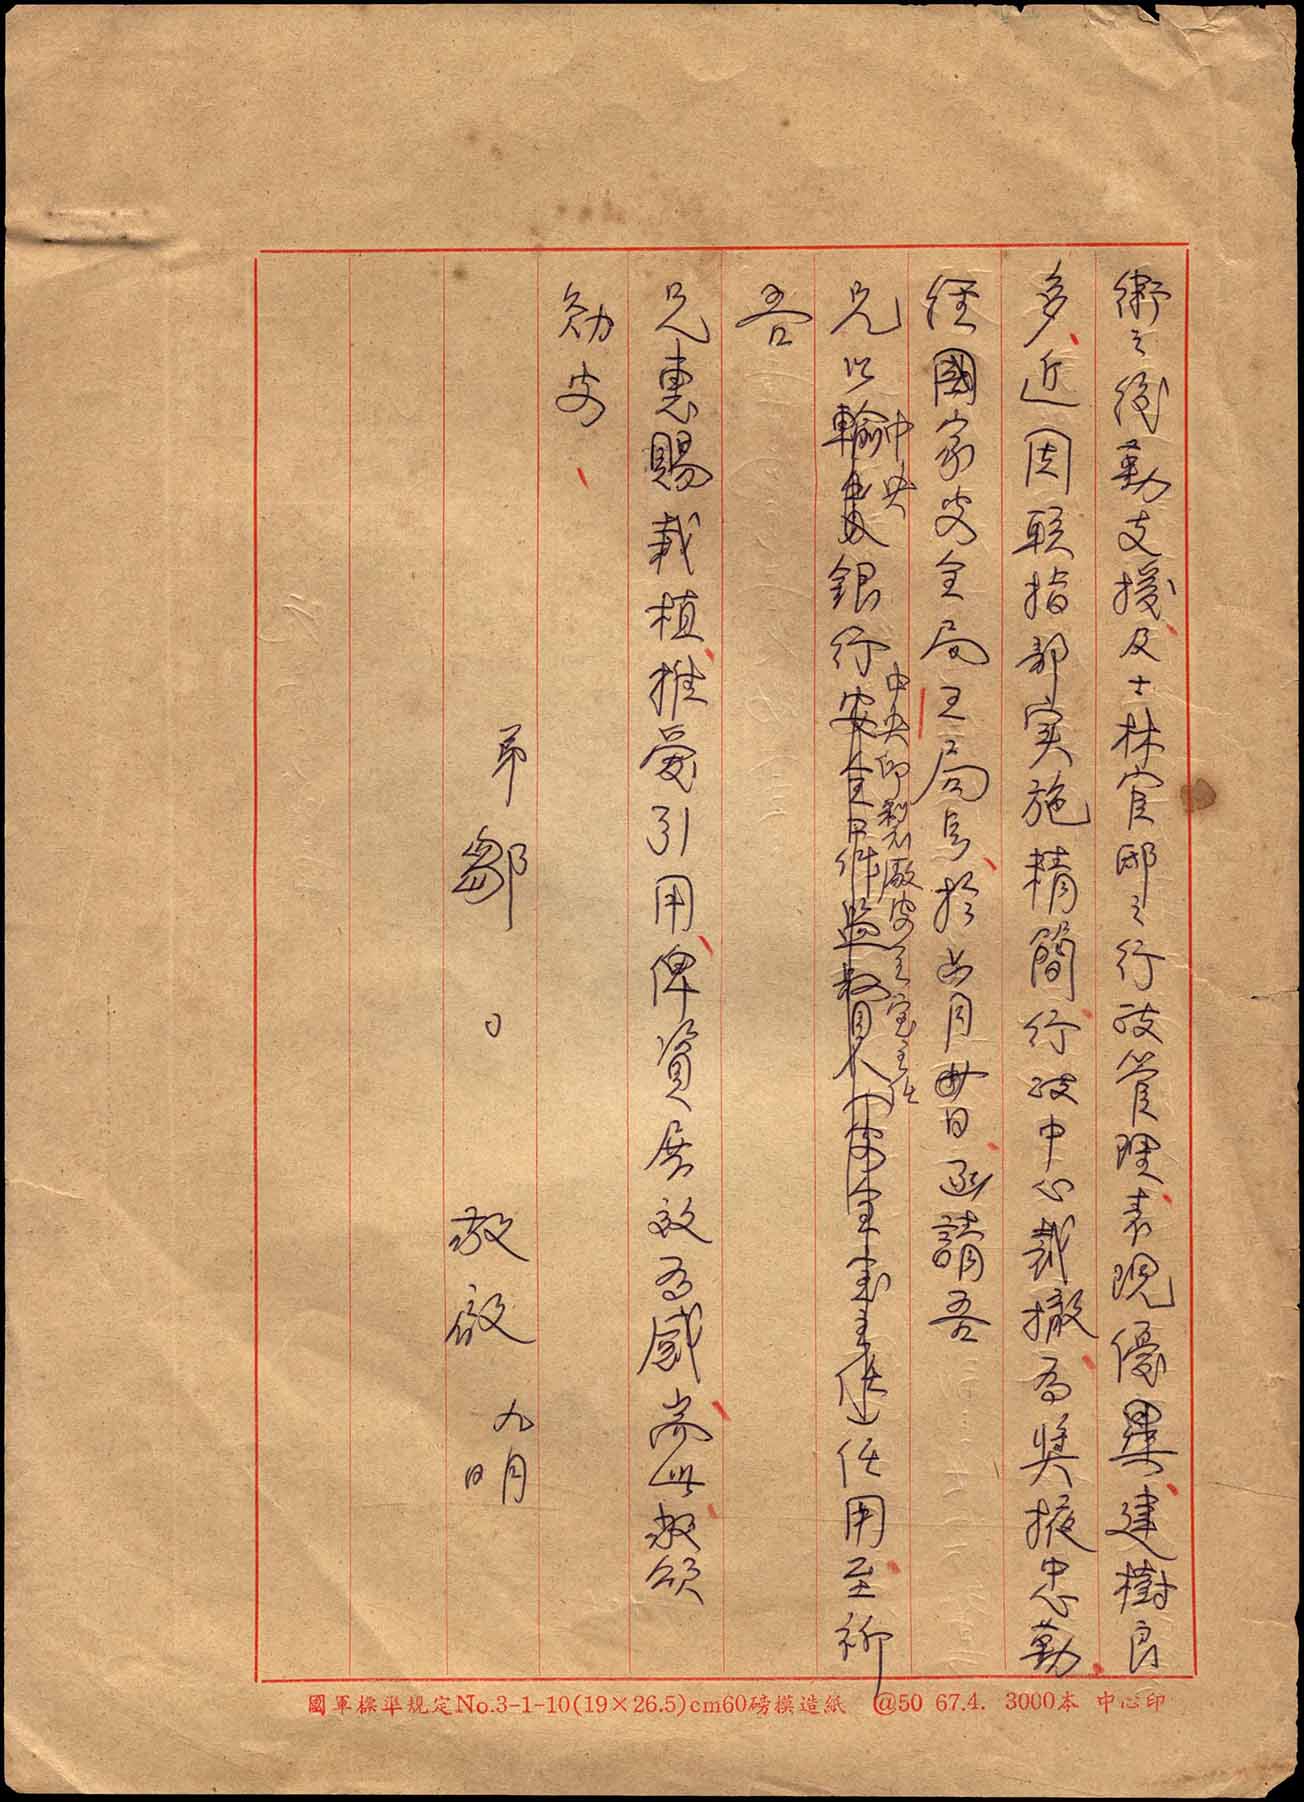 衛之後勤支援、及士林官邸之行政管理、表現優異、建樹良
多、近因聯指部实施精簡、行政中心裁撤、為奬掖忠勤、
经國家安全局王局長、於六月廿日、函請吾
兄以輸出入銀行安全
中央
中央印製廠安全室主任
任用、至祈
吾
兄惠賜栽植、推愛引用、俾資展效為感、耑此、敬頌
勛安、
弟鄒 敬啟 九月 日
國軍標準規定No.3-1-10(19×26.5)cm60磅模造紙 @50 67.4. 3000本 中心印